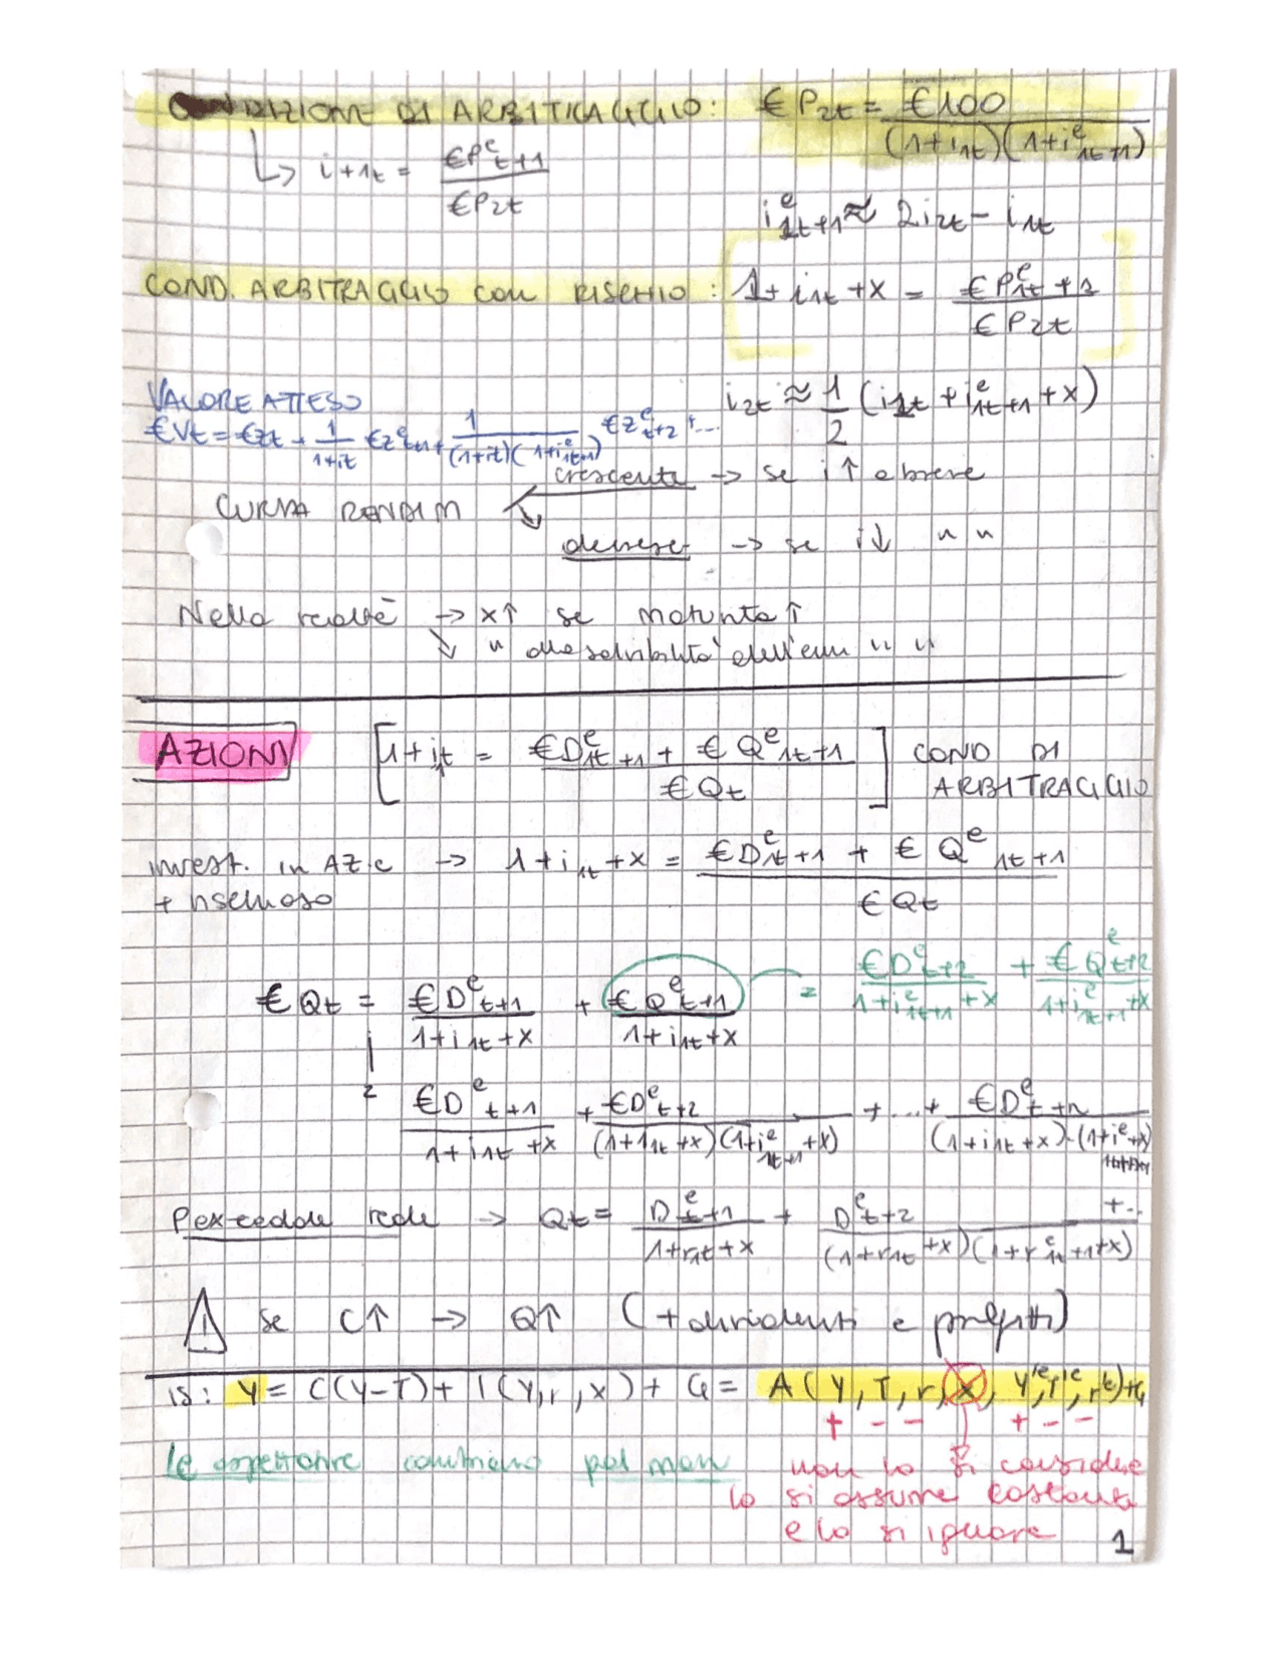 CONDIZIONE DI ARBITRAGGIO: €P2t = €100 / (1+i1t)(1+i^e 1t+1)
↳ i+1t = €P^e t+1 / €P2t
i^e 1t+1 ≈ 2i2t - i1t
COND. ARBITRAGGIO con RISCHIO: 1+i1t+x = €P^e 1t+1 / €P2t
VALORE ATTESO
i2t ≈ 1/2 (i1t + i^e 1t+1 + x)
€Vt = €zt + 1/(1+it) €z^e t+1 + 1/((1+it)(1+i^e 1t+1)) €z^e t+2 + ...
crescente → se i↑ a breve
CURVA RENDIM
decresc → se i↓ " "
Nella realtà → x↑ se maturità↑
↘ " alla solvibilità dell'em " "
AZIONI [1+i1t = (€D^e 1t+1 + €Q^e 1t+1) / €Qt] COND DI
ARBITRAGGIO
invest. in AZ è → 1+i1t+x = (€D^e 1t+1 + €Q^e 1t+1) / €Qt
+ rischioso
€Qt = €D^e t+1 / (1+i1t+x) + €Q^e t+1 / (1+i1t+x) = €D^e t+2 / (1+i^e 1t+1+x) + €Q^e t+2 / (1+i^e 1t+1+x)
= €D^e t+1 / (1+i1t+x) + €D^e t+2 / (1+i1t+x)(1+i^e 1t+1+x) + ... + €D^e t+n / (1+i1t+x)·(1+i^e+x)
P ex-cedola reale → Qt = D^e t+1 / (1+r1t+x) + D^e t+2 / (1+r1t+x)(1+r^e 1t+1+x) +..
⚠ se C↑ → Q↑ (+ dividenti e profitti)
IS: Y = C(Y-T) + I(Y,r,x) + G = A(Y,T,r,x, Y'^e,T'^e,r'^e)+G
+ - - + - -
Le aspettative cambiano pol mon non lo si considera
lo si assume costante
e lo si ignora
1